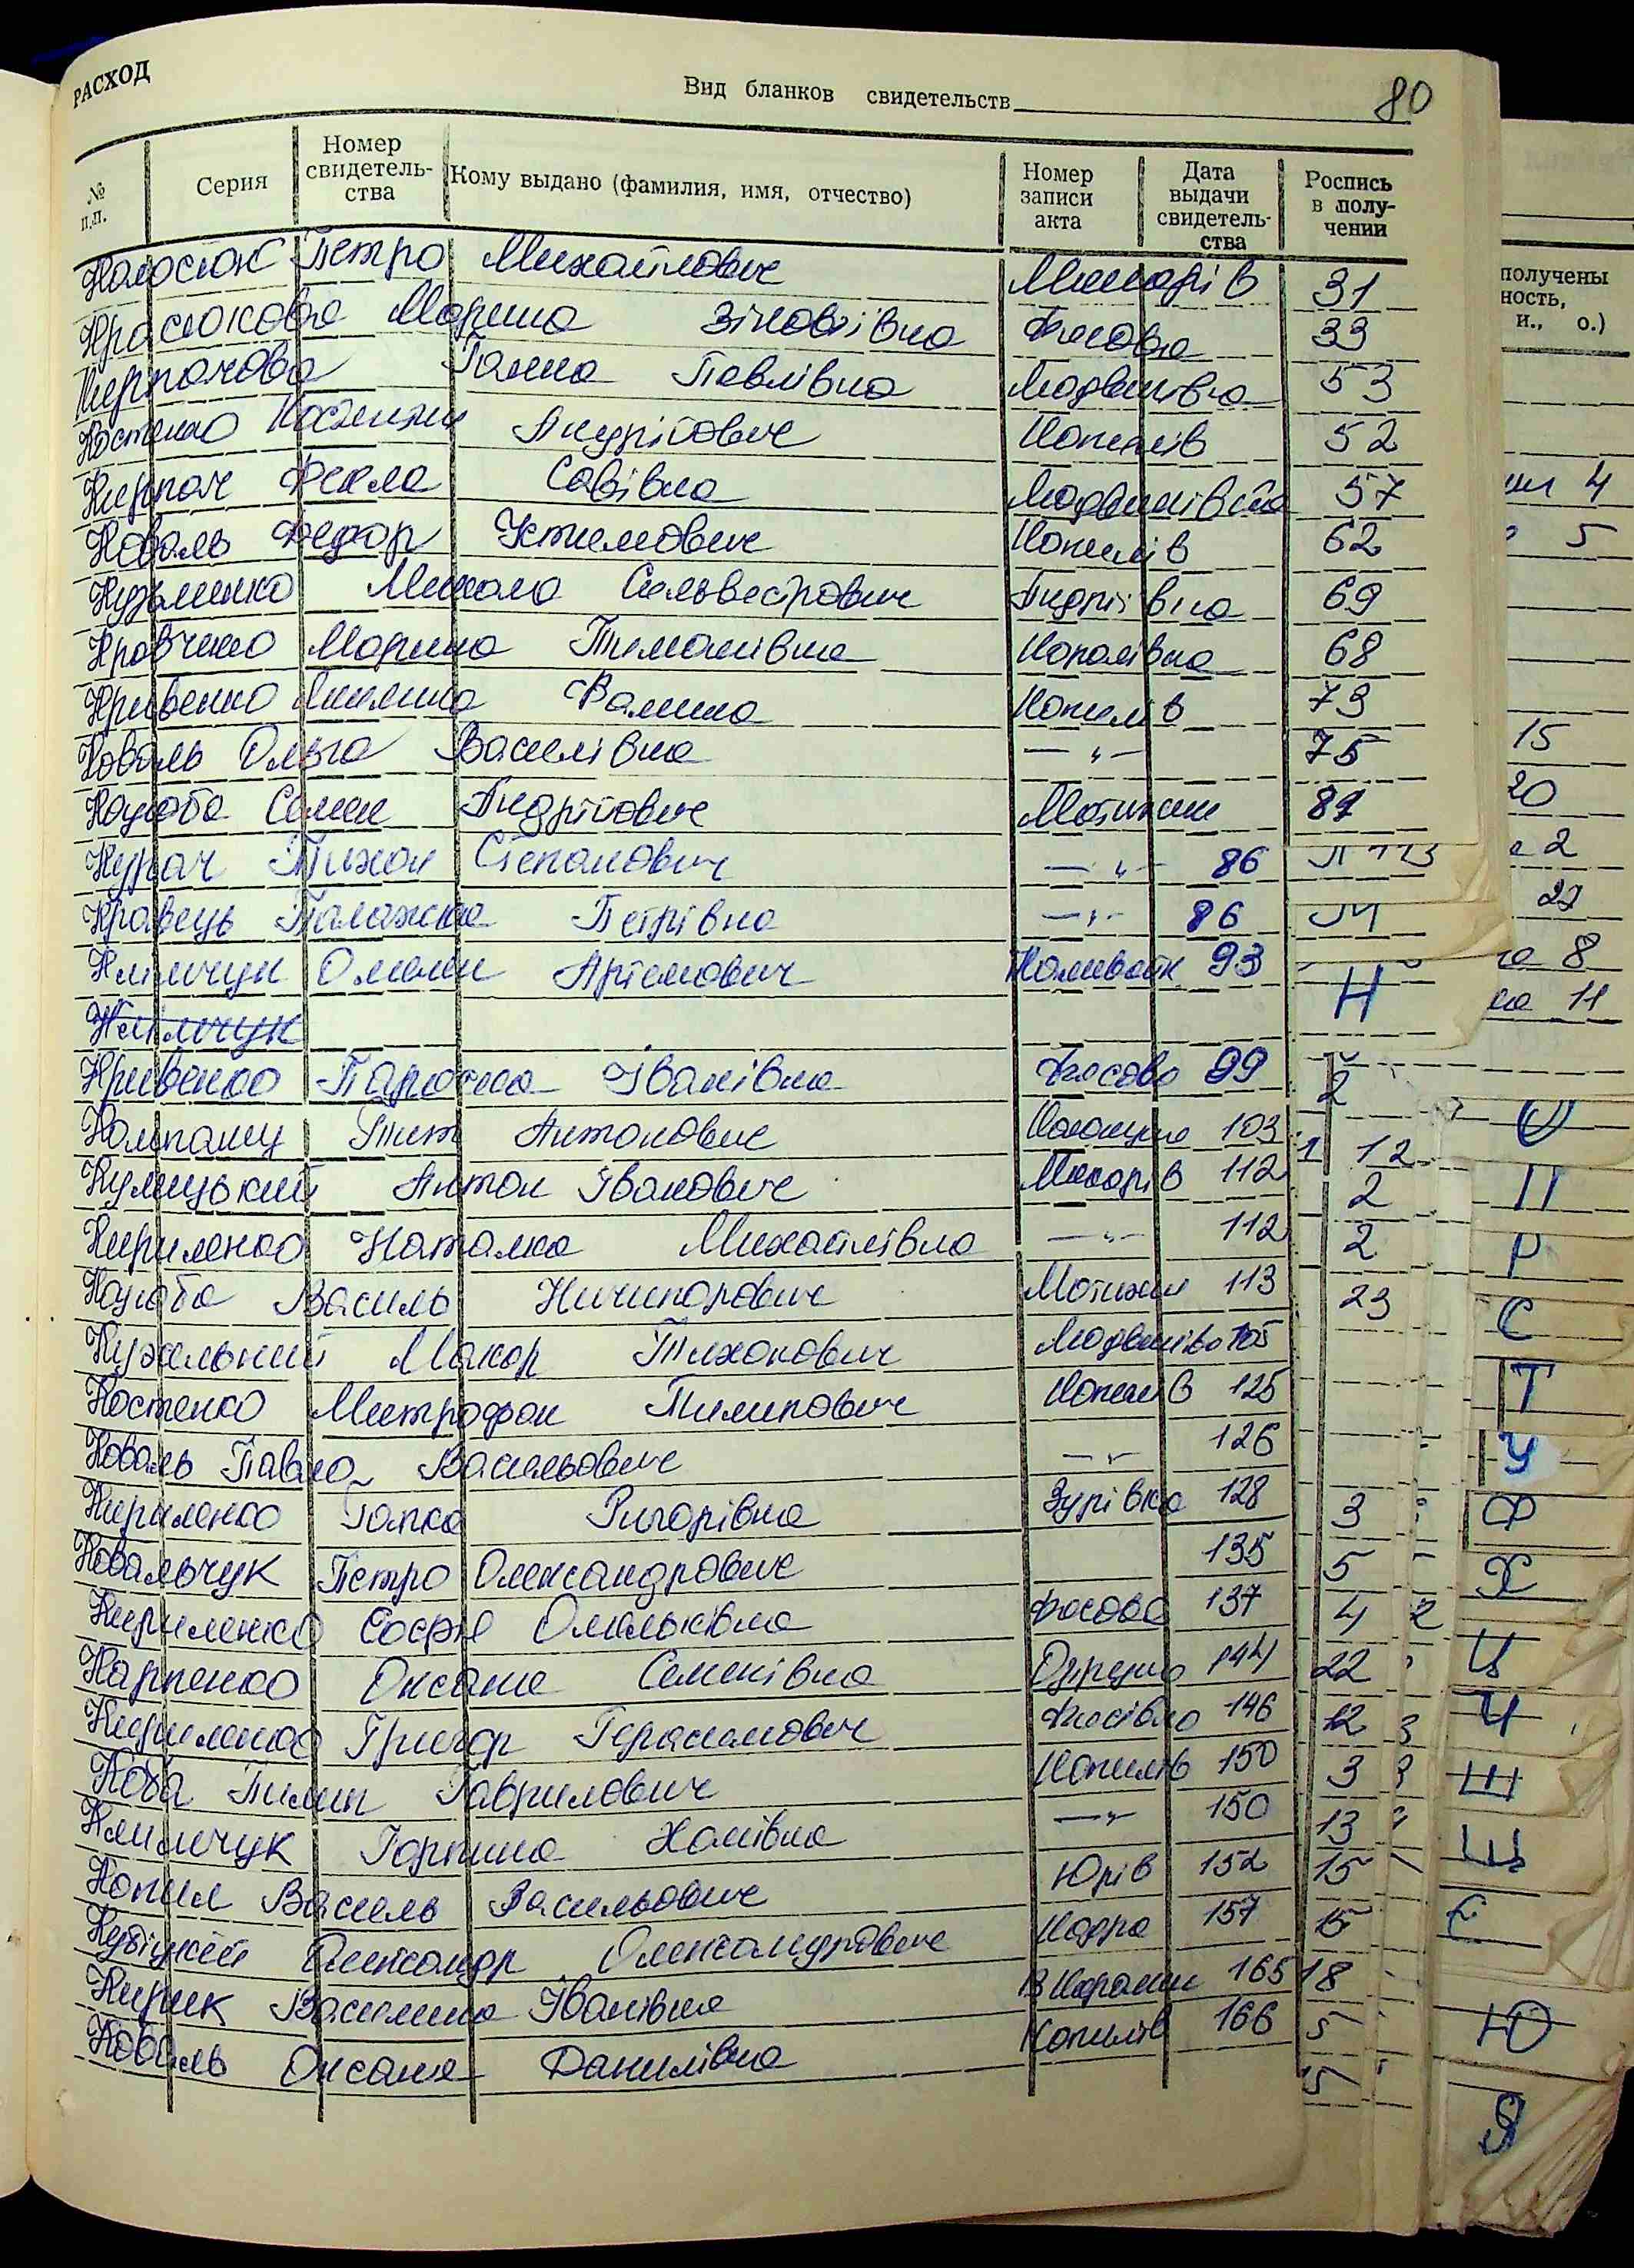 РАСХОД
Вид бланков свидетельств
80
№ п.п.
Серия
Номер свидетельства
Кому выдано (фамилия, имя, отчество)
Номер записи акта
Дата выдачи свидетельства
Роспись в получении
Петро Михайлович Макарів 31
Марина Зіновіївна Фасова 33
Ганна Павлівна 53
Костенко Андрійович Копилів 52
Кирпач Фекла Савівна 57
Коваль Федор Устимович Копилів 62
Кузьменко Микола Сильвестрович Андріївка 69
Кравченко Марина Тимошівна 68
Кривенко Килина Фомина Копилів 73
Коваль Ольга Василівна — „ — 75
Кацюба Семен Андрійович Мотижин
Курач Тихон Степанович — „ — 86
Кравець Палажка Петрівна — „ — 86
Клімчук Омелян Артемович Наливайк 93
Клімчук
Кривенко Параска Іванівна Фасова 99
Компанец Тит Антонович 103
Кулицький Антон Іванович Макарів 112
Кириленко Наталка Михайлівна — „ — 112
Кацюба Василь Ничипорович Мотижин 113
Кужельний Макар Тихонович
Костенко Митрофан Пилипович Копилів 125
Коваль Павло Васильович — „ — 126
Кириленко Гапка Григорівна Зурівка 128
Ковальчук Петро Олександрович 135
Кириленко Софія Омельківна Фасова 137
Карпенко Оксана Семенівна 144
Кириленко Григор Герасимович Фасівка 146
Коба Пилип Гаврилович Копилів 150
Климчук Горпина Хомівна — „ — 150
Копил Василь Васильович Юрів 152
Кубіцкій Олександр Олександрович 157
Кирик Василина Іванівна 165
Коваль Оксана Данилівна Копилів 166
получены
ность,
и., о.)
4
5
15
20
2
27
8
11
Н
О
П
Р
С
Т
У
Ф
Х
Ц
Ч
Ш
Щ
Є
Ю
Я